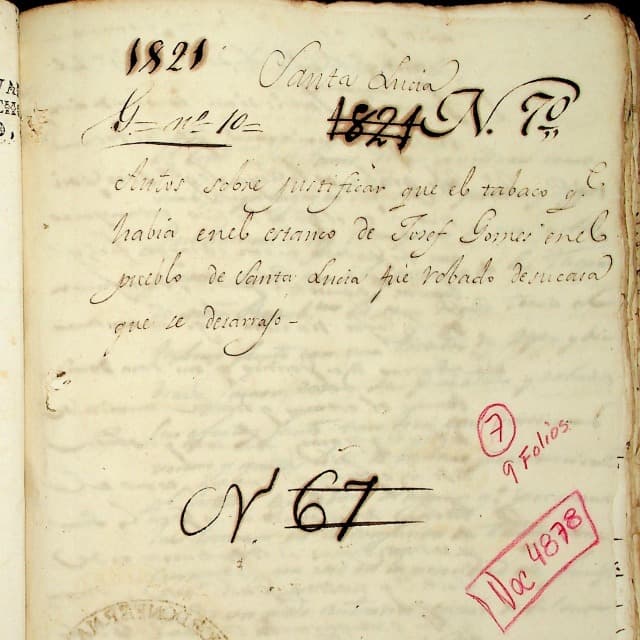 1821
Santa Lucia
G.= nº 10=
1824 N. 70
Autos sobre justificar que el tabaco q.e
habia enel estanco de Josef Gomes enel
pueblo de Santa Lucia fue robado desucasa
que se desarrajo-
7
9 Folios
Nº 67
Doc 4878